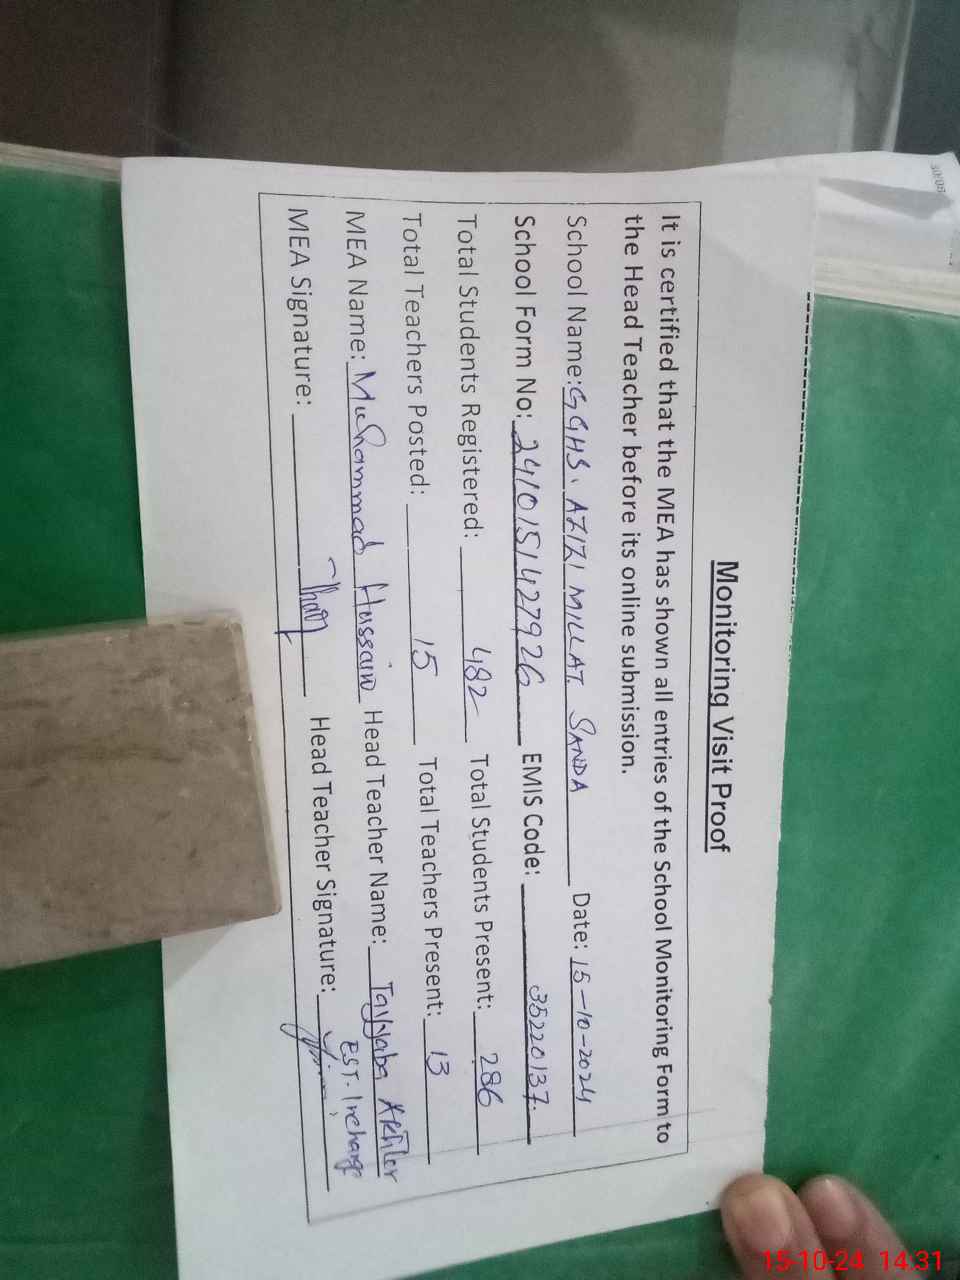 Monitoring Visit Proof
It is certified that the MEA has shown all entries of the School Monitoring Form to
the Head Teacher before its online submission.
School Name: GGHS. AZIZI MILLAT SANDA Date: 15-10-2024
School Form No: 2410151427926 EMIS Code: 35220137.
Total Students Registered: 482 Total Students Present: 286
Total Teachers Posted: 15 Total Teachers Present: 13
MEA Name: Muhammad Hussain Head Teacher Name: Tayyaba Akhter
EST. Incharge
MEA Signature: Head Teacher Signature:
15-10-24 14:31